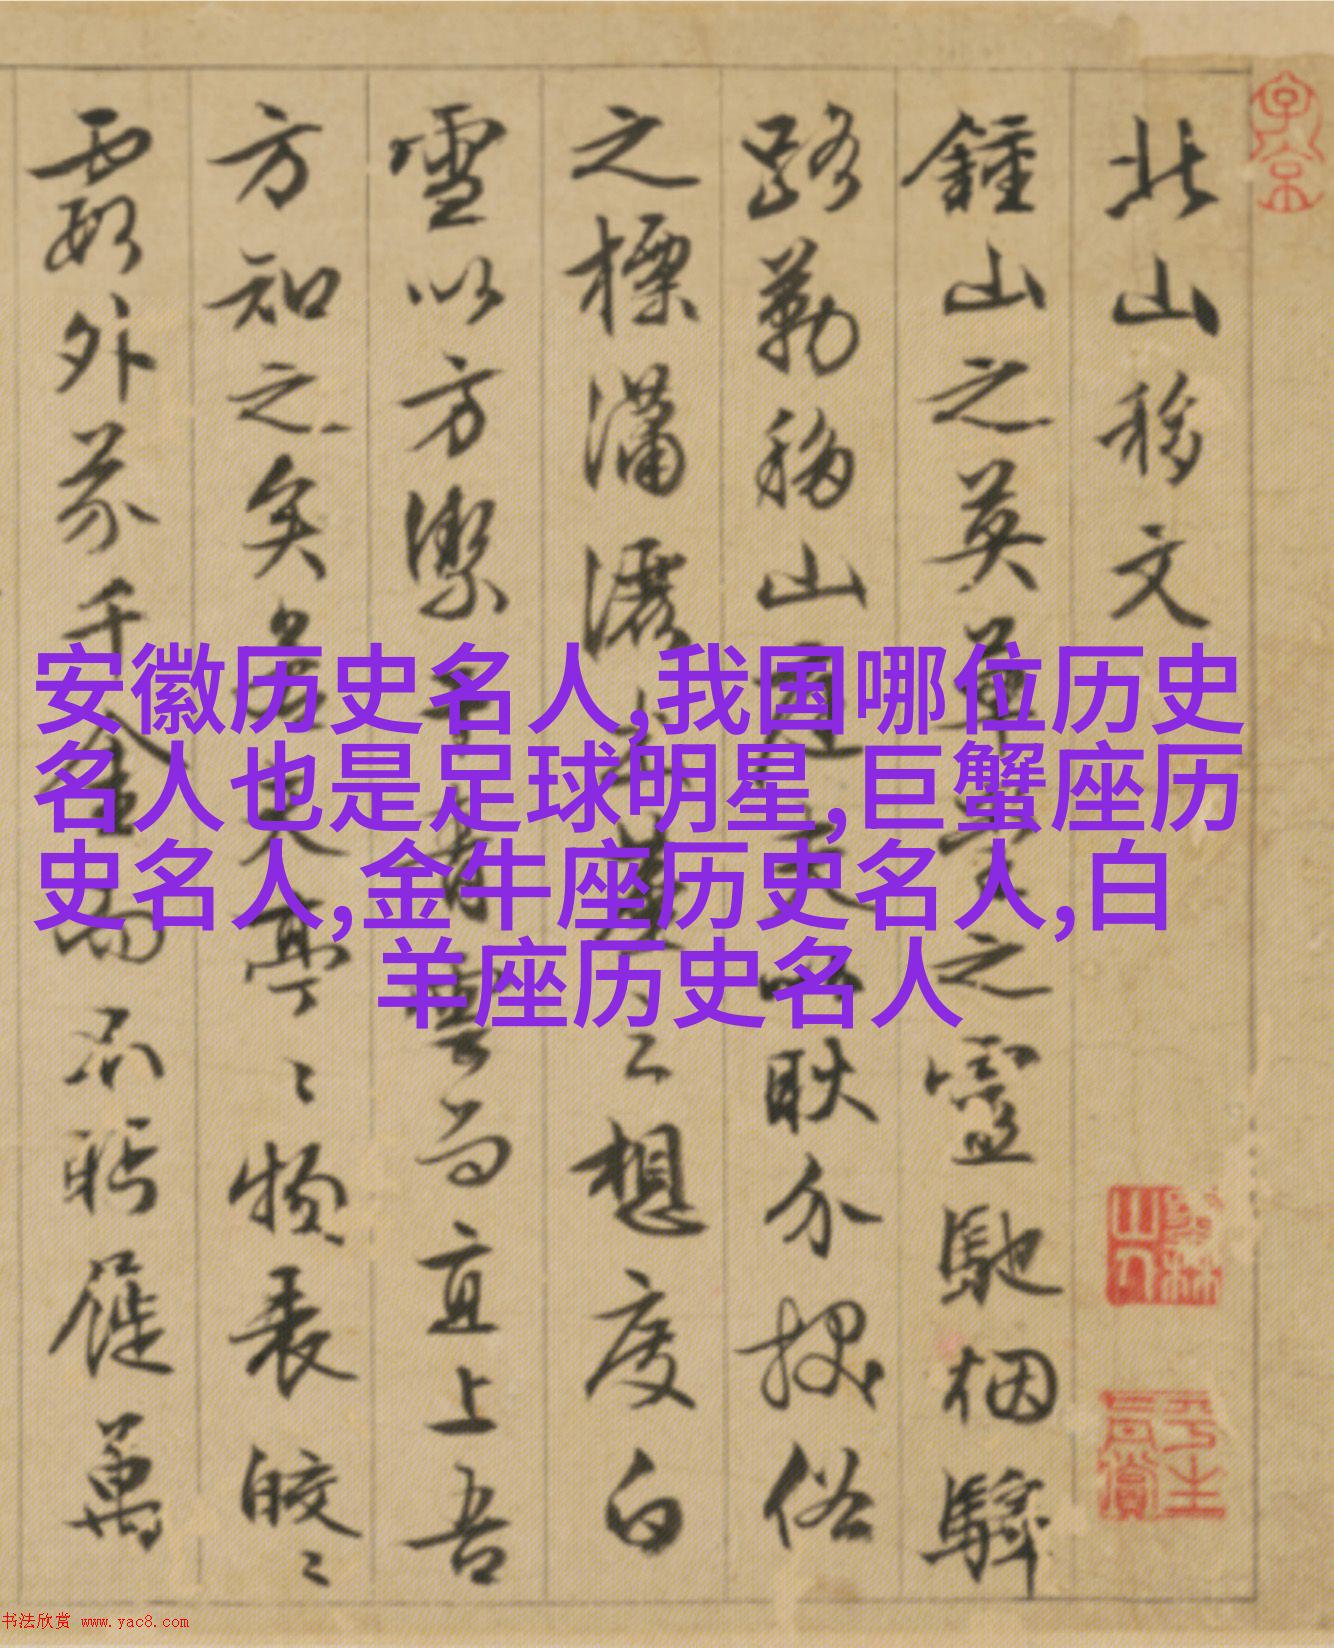 安徽历史名人,我国哪位历史
名人也是足球明星,巨蟹座历
史名人,金牛座历史名人,白
羊座历史名人
北山移文
鍾山之英草堂之靈馳烟驛
路勒移山庭夫以耿介拔俗
之標瀟灑出塵之想度白
雪以方潔干青雲而直上吾
方知之矣若其亭〻物表皎〻
霞外芥千金而不眄屣萬
书法欣赏 www.yac8.com